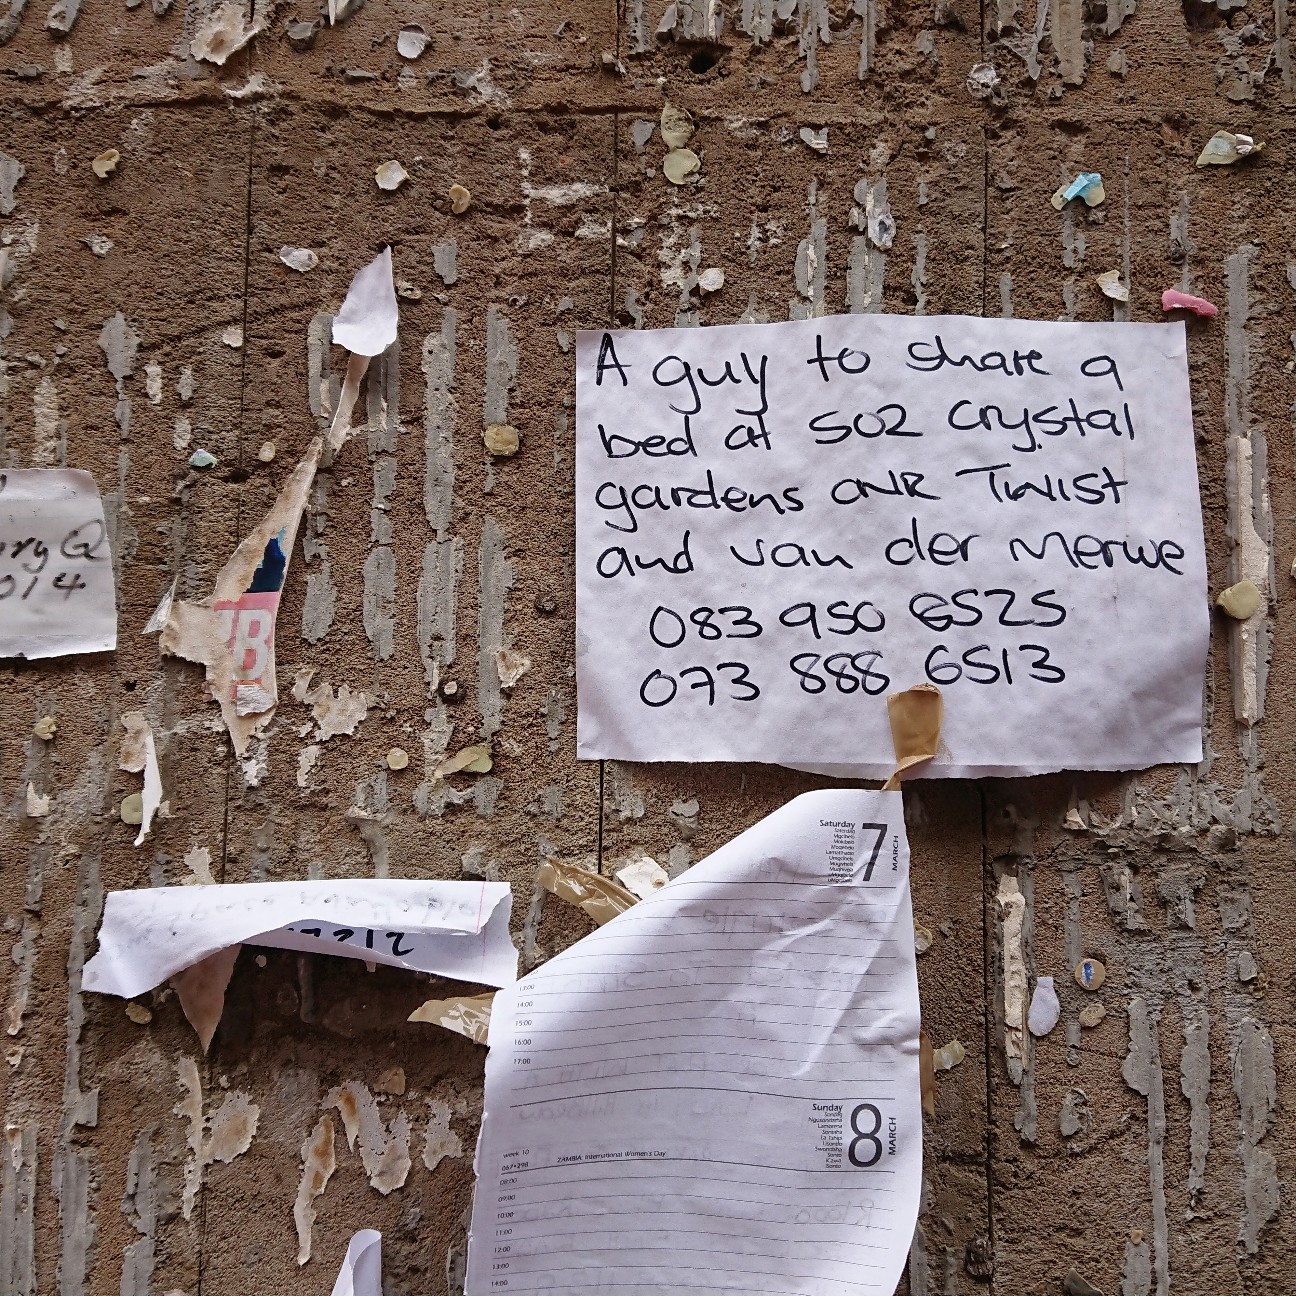 A guy to share a
bed at 502 crystal
gardens CNR Twist
and van der Merwe
083 950 6525
073 888 6513
014
B
7212
Saturday
7
MARCH
13:00
14:00
15:00
16:00
17:00
Sunday
8
MARCH
week 10
067•298
ZAMBIA: International Women's Day
08:00
09:00
10:00
11:00
12:00
13:00
14:00